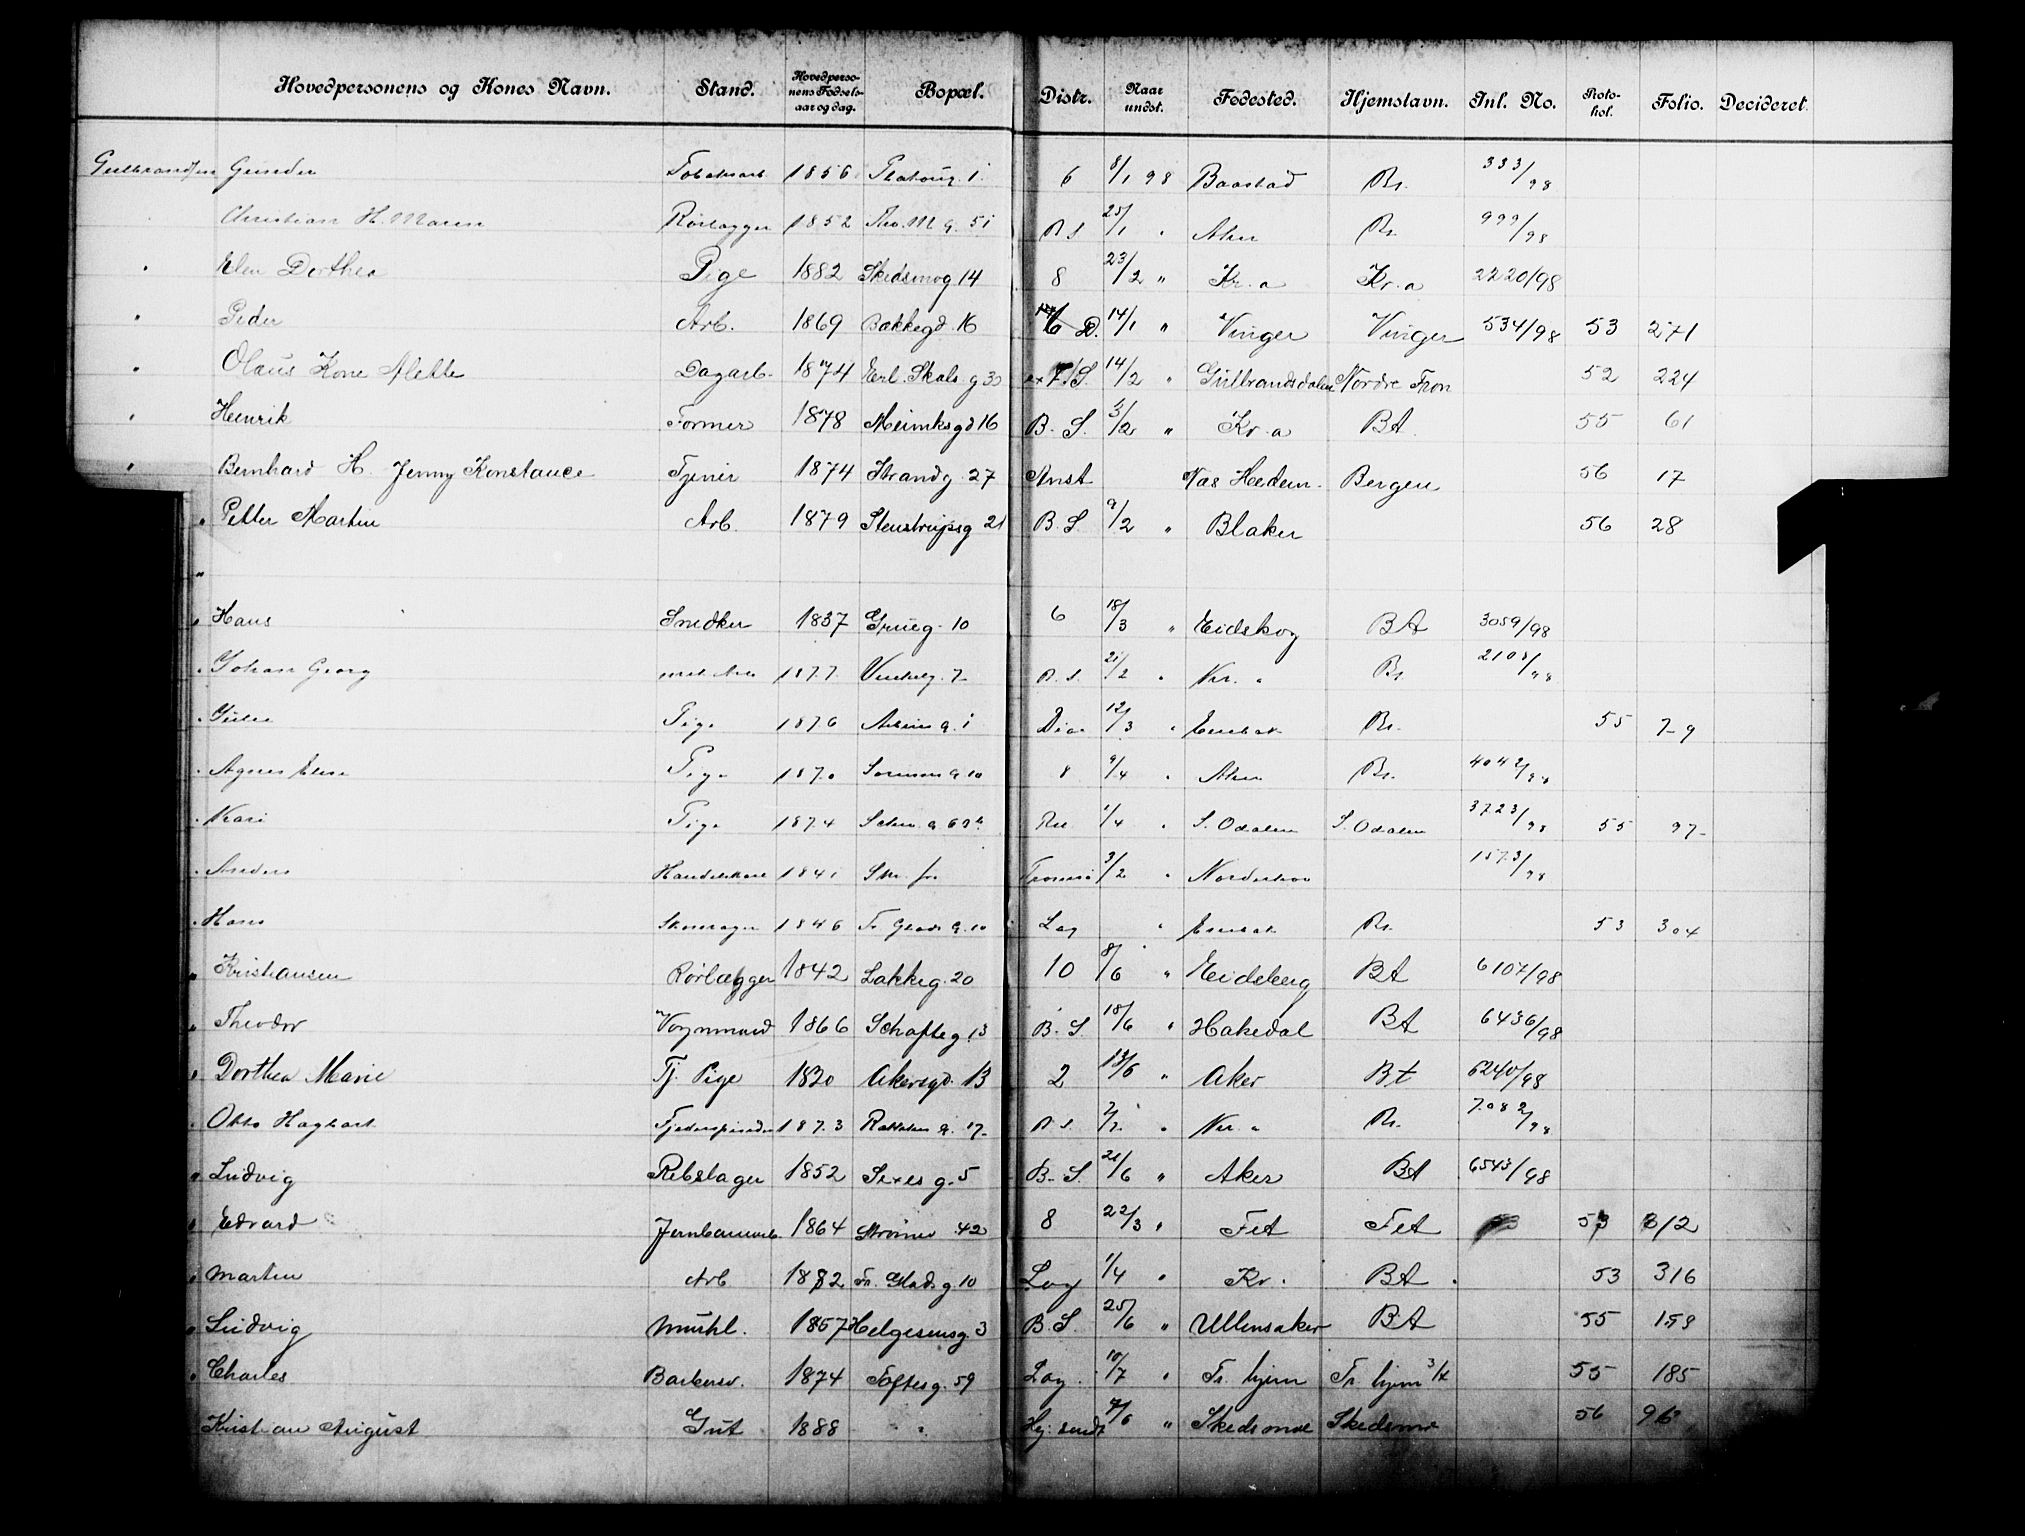 Hovedpersonens og Kones Navn. Stand. Hovedpersonens Fødselsaar og dag. Bopæl. Distr. Naar undst. Fødested. Hjemstavn. Inl. No. Protokol. Folio. Decideret.
Gulbrandsen Gunder 1856 1 6 8/1 98 Baastad Bt. 333/98
Christian H. Maren Rørlægger 1852 Thv. M g. 51 B S 25/1 " Aker Bt. 999/98
" Elen Dorthea Pige 1882 Skedsmog 14 8 23/2 " Kr.a Kr.a 2220/98
" Peder Arb. 1869 Bakkegd. 16 6 D. 14/1 " Vinger Vinger 534/98 53 271
" Olaus Kone Alette Dagarb. 1874 Erl. Skals g 30 14/2 " Gulbrandsdalen Nordre Fron 52 224
" Henrik Former 1878 16 B. S. 3/2 " Kr.a BA 55 61
" Bernhard H. Jenny Konstance Tjener 1874 Strandg. 27 Anst Næs Hedem. Bergen 56 17
" Petter Martin Arb. 1879 Stenstrupsg 21 B. S. 9/2 " Blaker 56 28
"
" Hans Snedker 1837 Grueg. 10 6 18/3 " Eidskog BA 3059/98
" Johan Georg 1877 7 B. S. 21/2 " Kr. a Bt.
" Pige 1876 1 Dia 12/3 " Enebak Bt. 55 79
" Agnes Elise Pige 1870 10 8 9/4 " Aker Bt. 4042/98
" Kari Pige 1874 1/4 " S. Odalen S. Odalen 3723/98 55 97
" Anders 1841 Tromsø 3/2 " 1573/98
" Hans Skomager 1846 Fr. Glads g. 10 Lag " Enebak Bt. 53 304
" Kristiansen Rørlægger 1842 Lakkeg. 20 10 8/6 " Eidsberg BA 6107/98
" Theodor Vognmand 1866 Schafteg. 13 B. S. 18/6 " Hakedal BA 6436/98
" Dorthea Marie Tj. Pige 1830 Akersgd. 13 2 13/6 " Aker Bt 6240/98
" Otto Hagbart 1873 17 B. S. " Kr. a Bt. 7082/98
" Ludvig Rebslager 1852 Sexesg. 5 B. S. 21/6 " Aker BA 6543/98
" Edvard Jernbanearb. 1864 Strømsv 42 8 22/3 " Fet Fet 53 312
" Martin Arb 1882 Fr. Glads g. 10 Lag 1/4 " Kr. BA 53 316
" Ludvig 1857 Helgesensg. 3 B. S. 25/6 " Ullensaker BA 55 159
" Charles Barbersv. 1874 Toftesg. 59 Lag 10/7 " Tr. hjem Tr. hjem 55 185
Kristian August Gut 1888 " Hj. sendt 7/6 " Skedsmoe Skedsmo 56 96